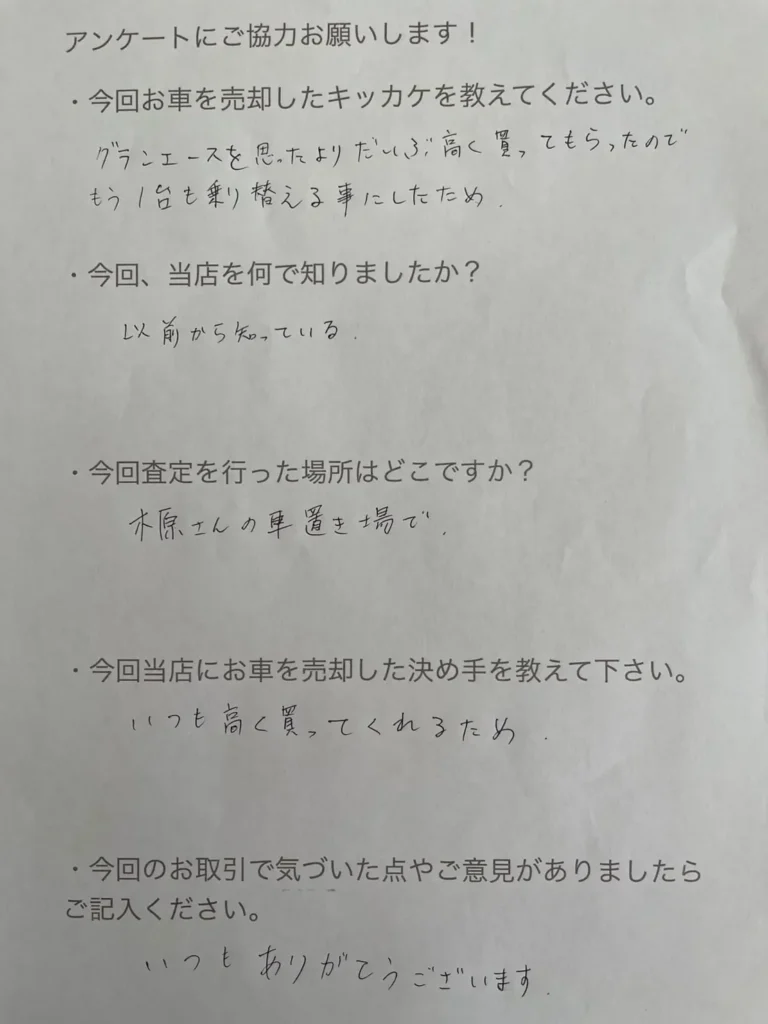 アンケートにご協力お願いします！
・今回お車を売却したキッカケを教えてください。
グランエースを思ったよりだいぶ高く買ってもらったので
もう1台も乗り替える事にしたため.
・今回、当店を何で知りましたか？
以前から知っている.
・今回査定を行った場所はどこですか？
木原さんの車置き場で.
・今回当店にお車を売却した決め手を教えて下さい。
いつも高く買ってくれるため.
・今回のお取引で気づいた点やご意見がありましたら
ご記入ください。
いつもありがとうございます.